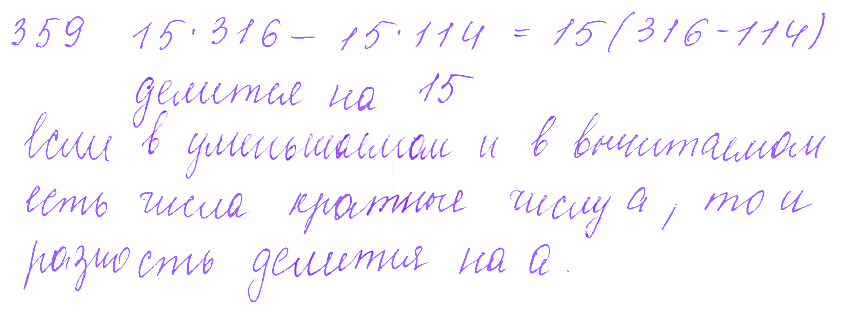 359 15·316 - 15·114 = 15(316-114)
делится на 15
если в уменьшаемом и в вычитаемом
есть числа кратные числу а, то и
разность делится на а.